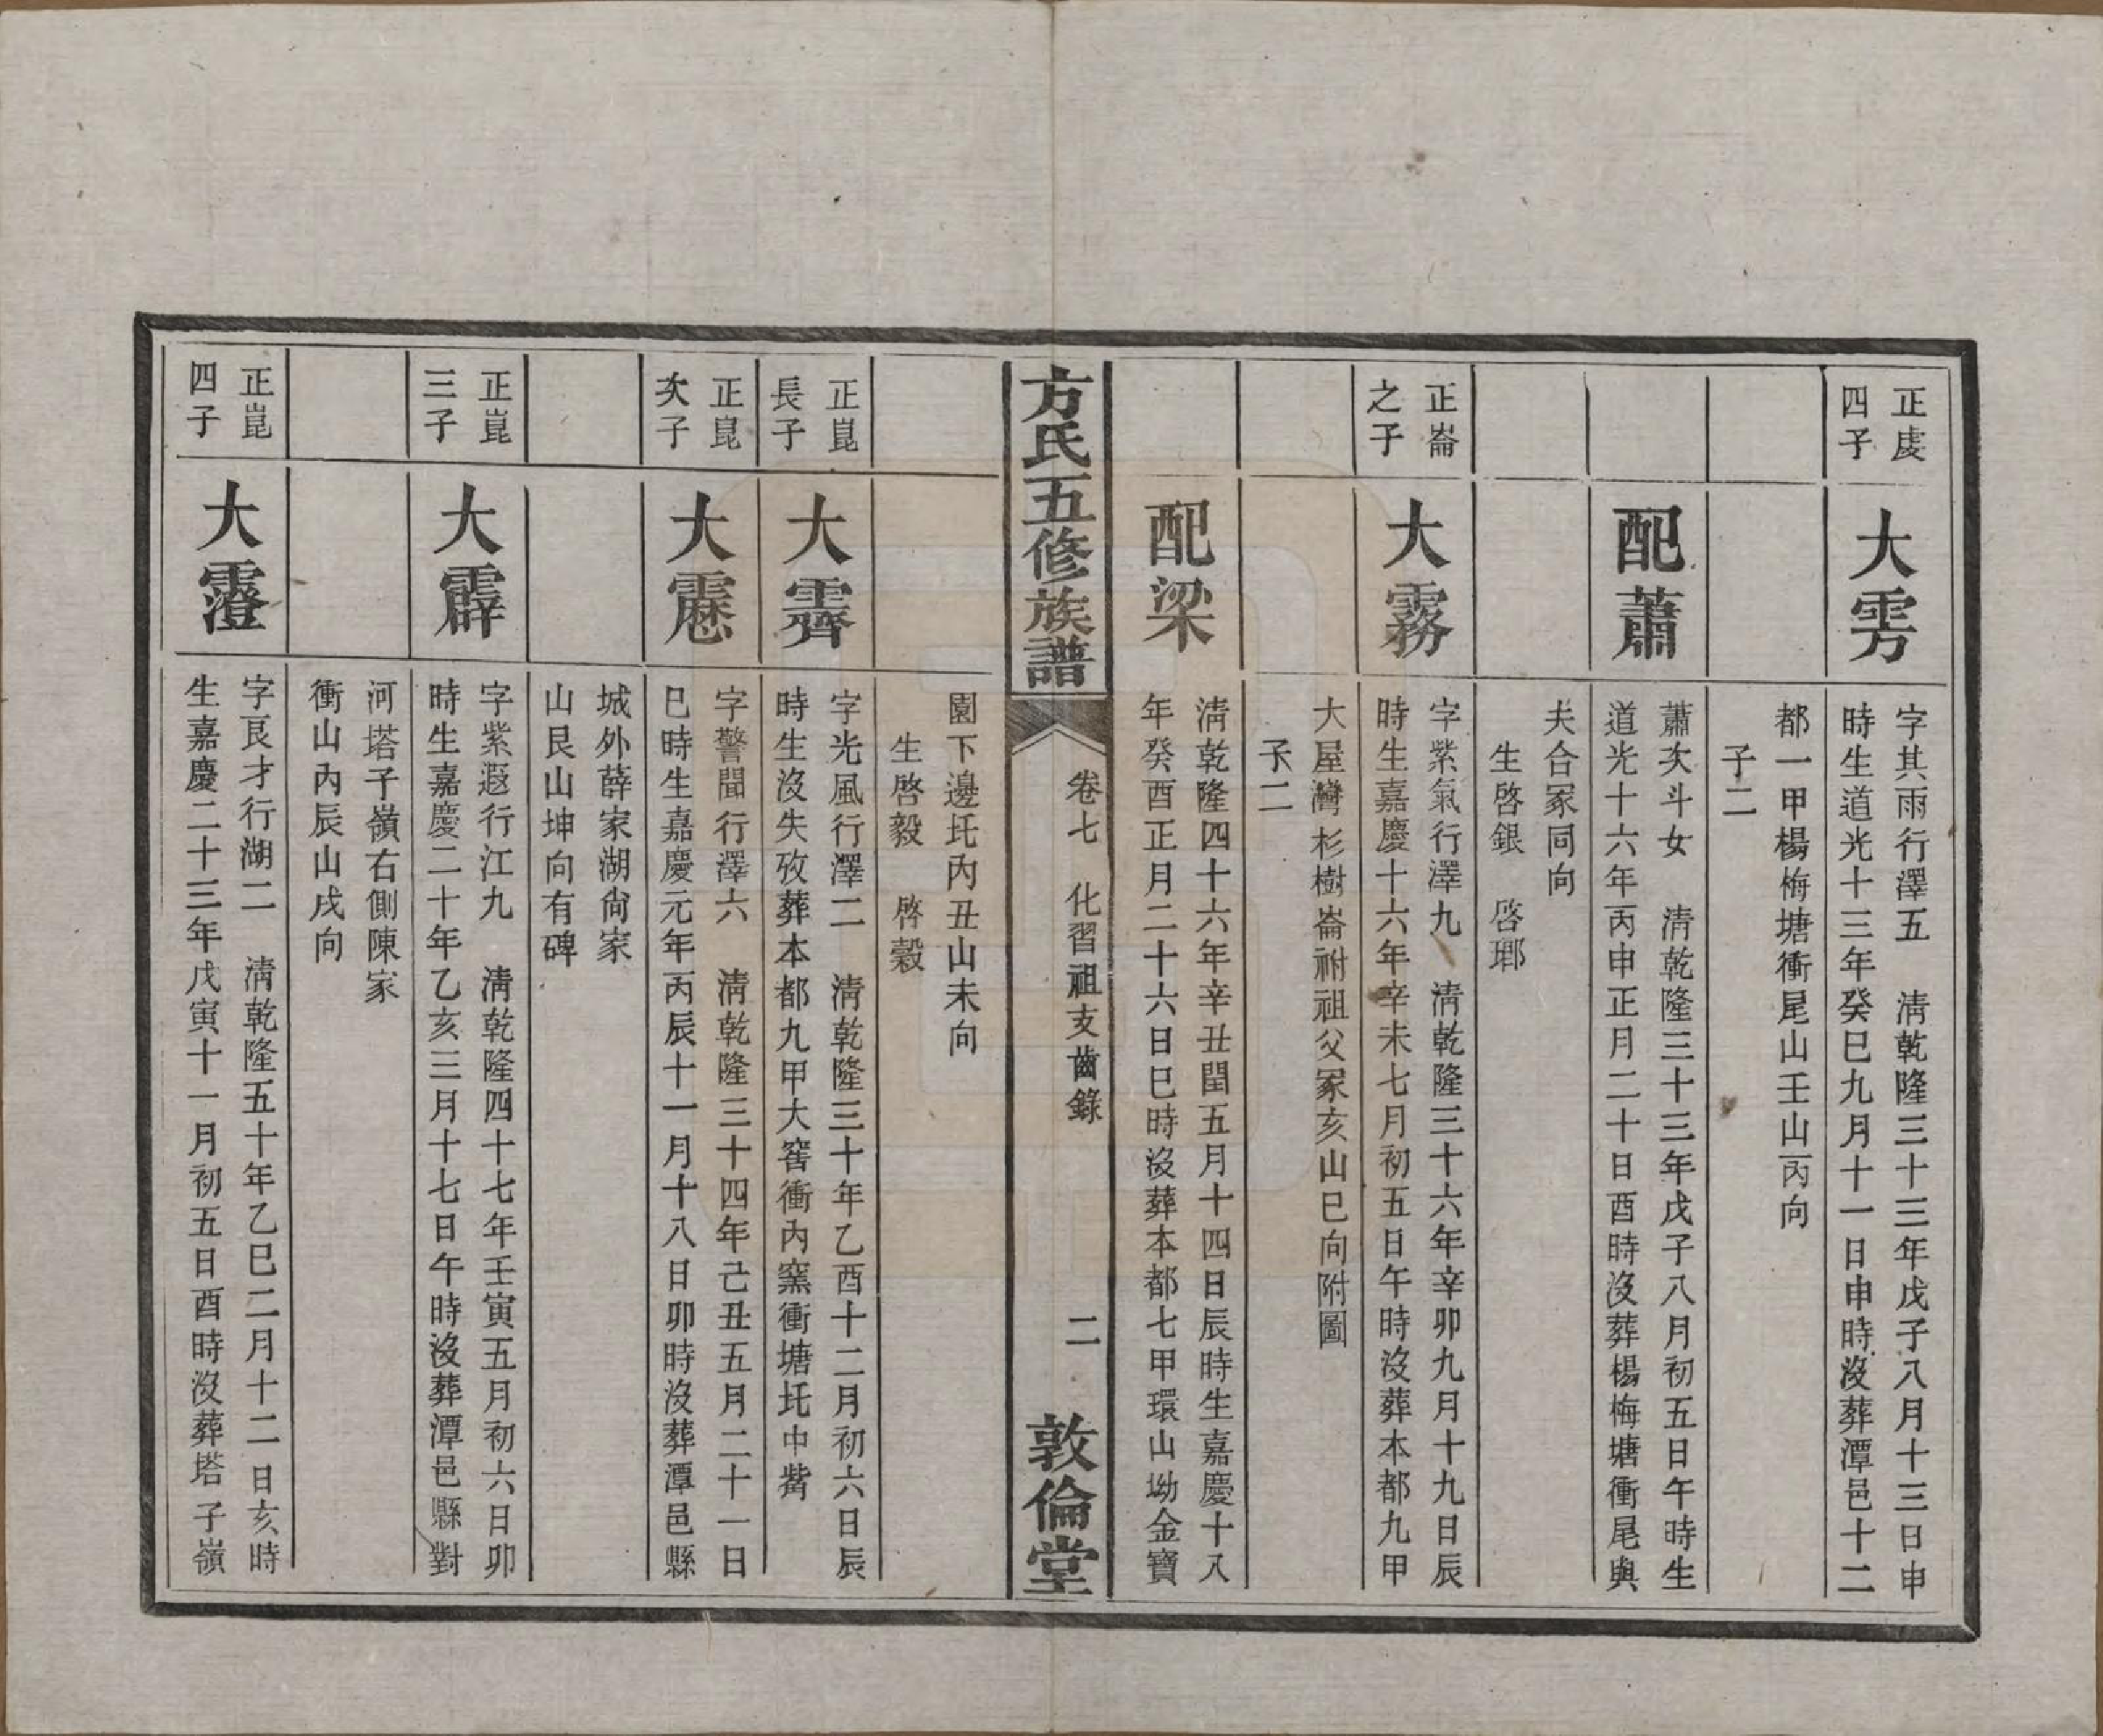 正虔
四子
大雱
字其雨行澤五　清乾隆三十三年戊子八月十三日申
時生道光十三年癸巳九月十一日申時沒葬潭邑十二
都一甲楊梅塘衝尾山壬山丙向
子二
配蕭
蕭次斗女　清乾隆三十三年戊子八月初五日午時生
道光十六年丙申正月二十日酉時沒葬楊梅塘衝尾與
夫合冢同向
生啓銀　啓瑯
正崙
之子
大霧
字紫氣行澤九　清乾隆三十六年辛卯九月十九日辰
時生嘉慶十六年辛未七月初五日午時沒葬本都九甲
大屋灣杉樹崙祔祖父冢亥山巳向附圖
子二
配梁
清乾隆四十六年辛丑閏五月十四日辰時生嘉慶十八
年癸酉正月二十六日巳時沒葬本都七甲環山坳金寶
方氏五修族譜
卷七　化習祖支齒錄
二
敦倫堂
園下邊圫內丑山未向
生啓毅　啓穀
正崑
長子
大霽
字光風行澤二　清乾隆三十年乙酉十二月初六日辰
時生沒失攷葬本都九甲大窖衝內窯衝塘圫中嘴
正崑
次子
大靋
字警聞行澤六　清乾隆三十四年己丑五月二十一日
巳時生嘉慶元年丙辰十一月十八日卯時沒葬潭邑縣
城外薛家湖尙家
山艮山坤向有碑
正崑
三子
大霹
字紫遐行江九　清乾隆四十七年壬寅五月初六日卯
時生嘉慶二十年乙亥三月十七日午時沒葬潭邑縣對
河塔子嶺右側陳家
衝山內辰山戌向
正崑
四子
大霯
字艮才行湖二　清乾隆五十年乙巳二月十二日亥時
生嘉慶二十三年戊寅十一月初五日酉時沒葬塔子嶺